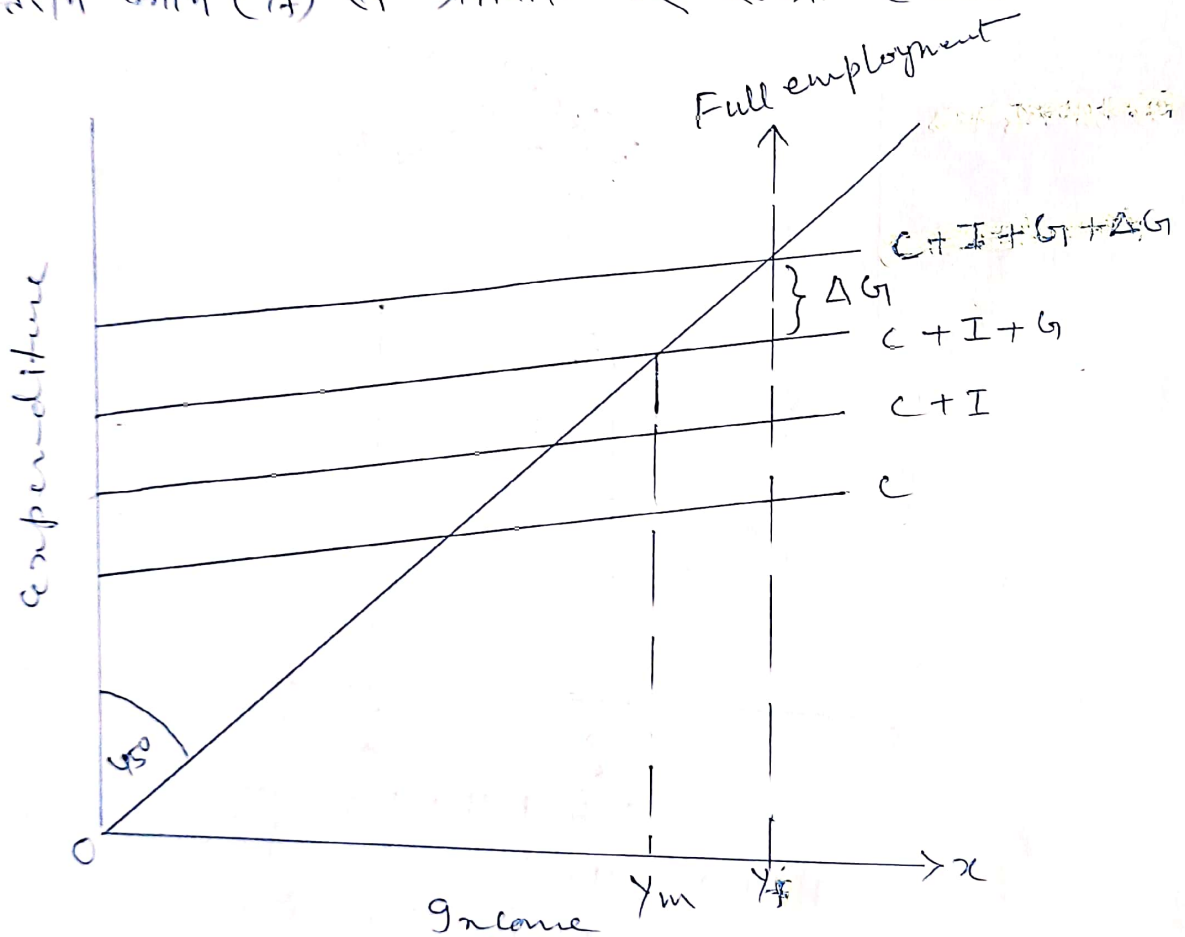 Full employment
C + I + G + ΔG
} ΔG
C + I + G
C + I
C
Expenditure
45°
O
x
Ym
Yf
Income